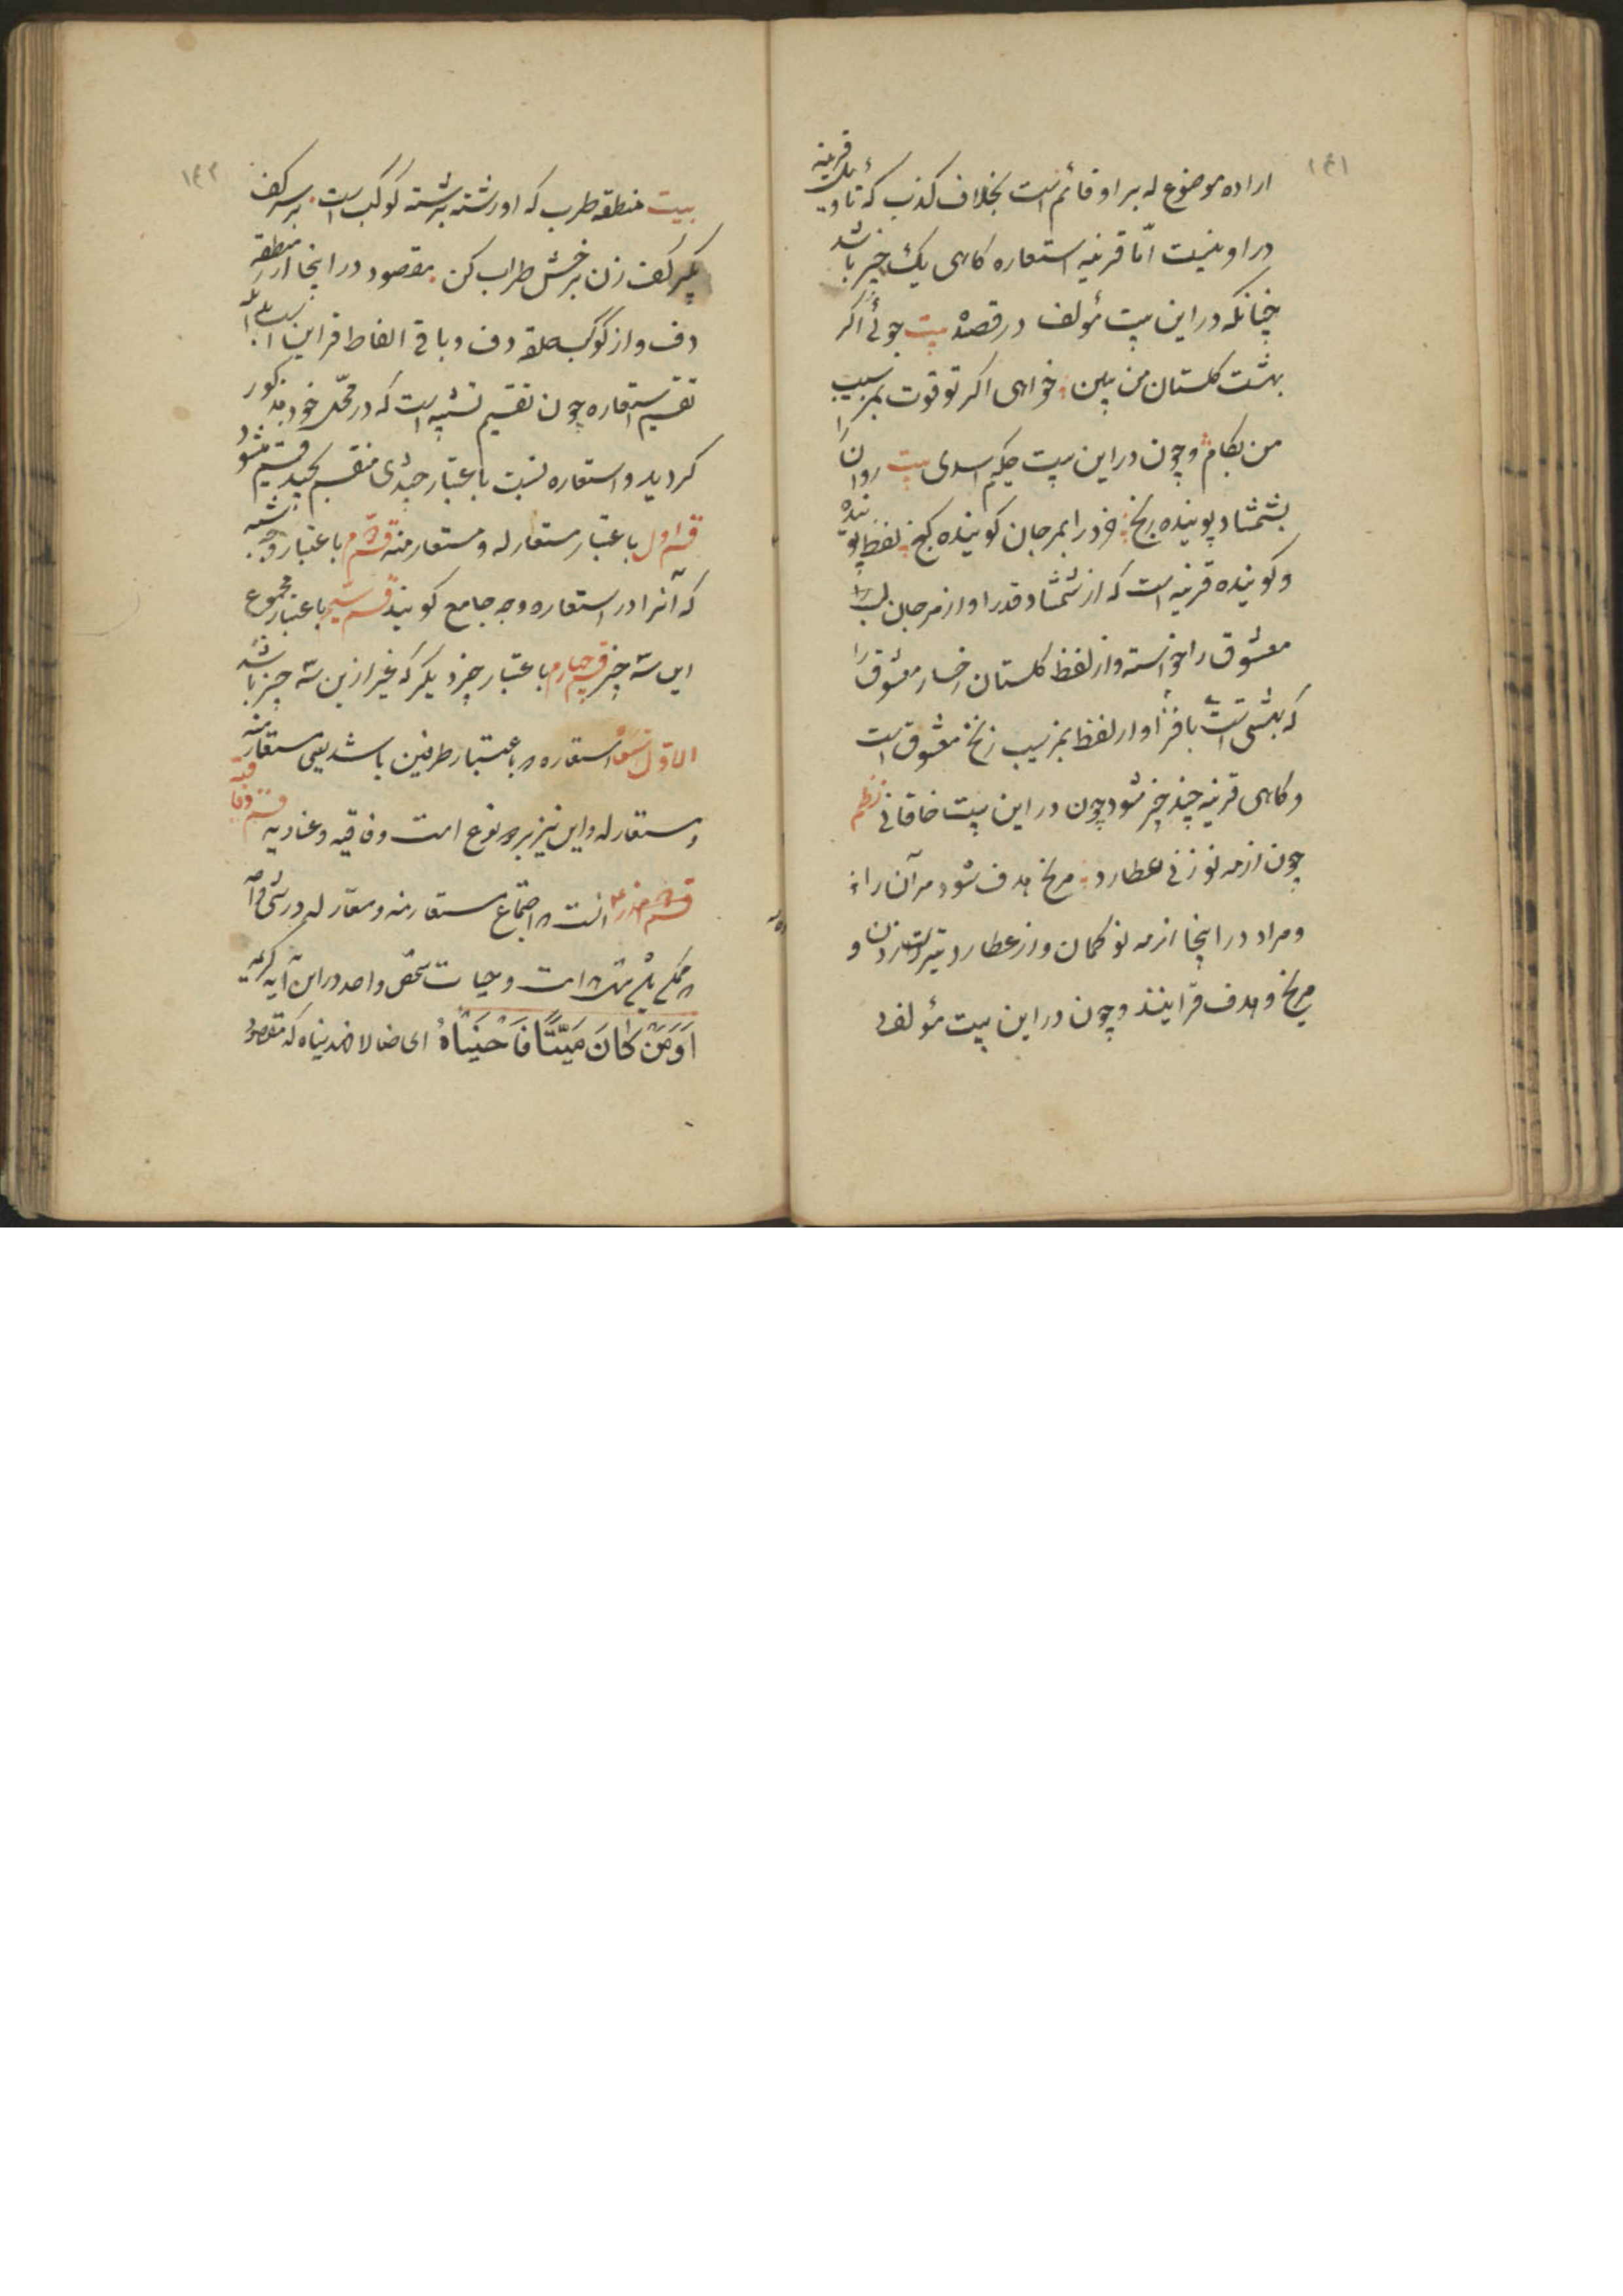 ۱۴۱
اراده موضوع له بر او قائم است بخلاف کذب که تاویل قرینه
در او نیست امّا قرینه استعاره کاهی یک چیز باشد
چنانکه در این بیت مؤلف در قصه بیت جوئی اکر
بهشت کلستان من ببین خواهی اکر تو قوت بمز سیب
من بکام و چون در این بیت حکیم اسدی بیت روان را
بشمشاد پوینده رنج خرد را بمرجان کوینده کنج لفظ پوینده
و کوینده قرینه است که از شمشاد قد را و از مرجان لب را
معشوق را خواسته و از لفظ کلستان رخسار معشوق را
که بهشتی است با فزا و از لفظ بمز سیب زنخ معشوق است
و کاهی قرینه چند چیز شود چون در این بیت خاقانی نظم
چون از مه نو زنی عطارد مریخ هدف شود مر آن را
و مراد در اینجا از مه نو کمان و از عطارد تیر است زدن و
مریخ و هدف قراینند و چون در این بیت مؤلف
۱۴۲
بیت منطقه طرب که او رشته برشته کوکب است بر سر کف
بکیر کف زن برخش طراب کن مقصود در اینجا از منطقه
دف و از کوکب حلقه دف و باقی الفاظ قراین است
تقسیم استعاره چون تقسیم تشبیه است که در محّل خود مذکور
کردید و استعاره نسبت باعتبار چندی منقسم بچند قسم میشود
قسم اول باعتبار مستعار له و مستعار منه قسم دوم باعتبار وجه شبه
که آنرا در استعاره وجه جامع کویند قسم سیم باعتبار مجموع
این سه چیز قسم چهارم باعتبار چیز دیکر که غیر ازین سه چیز باشد
الاوّل استعاره باعتبار طرفین باشد یعنی مستعار منه
و مستعار له و این نیز بر دو نوع است وفاقیه و عنادیه قسم وفاقیه
آنست که اجتماع مستعار منه و مستعار له در شئی واحد
ممکن است و حیات شخص واحد در این آیه کریمه
اَوَمَنْ کٰانَ مَیّتًا فَاَحْیَیْنٰاهُ ای ضالا فهدیناه که مقصود